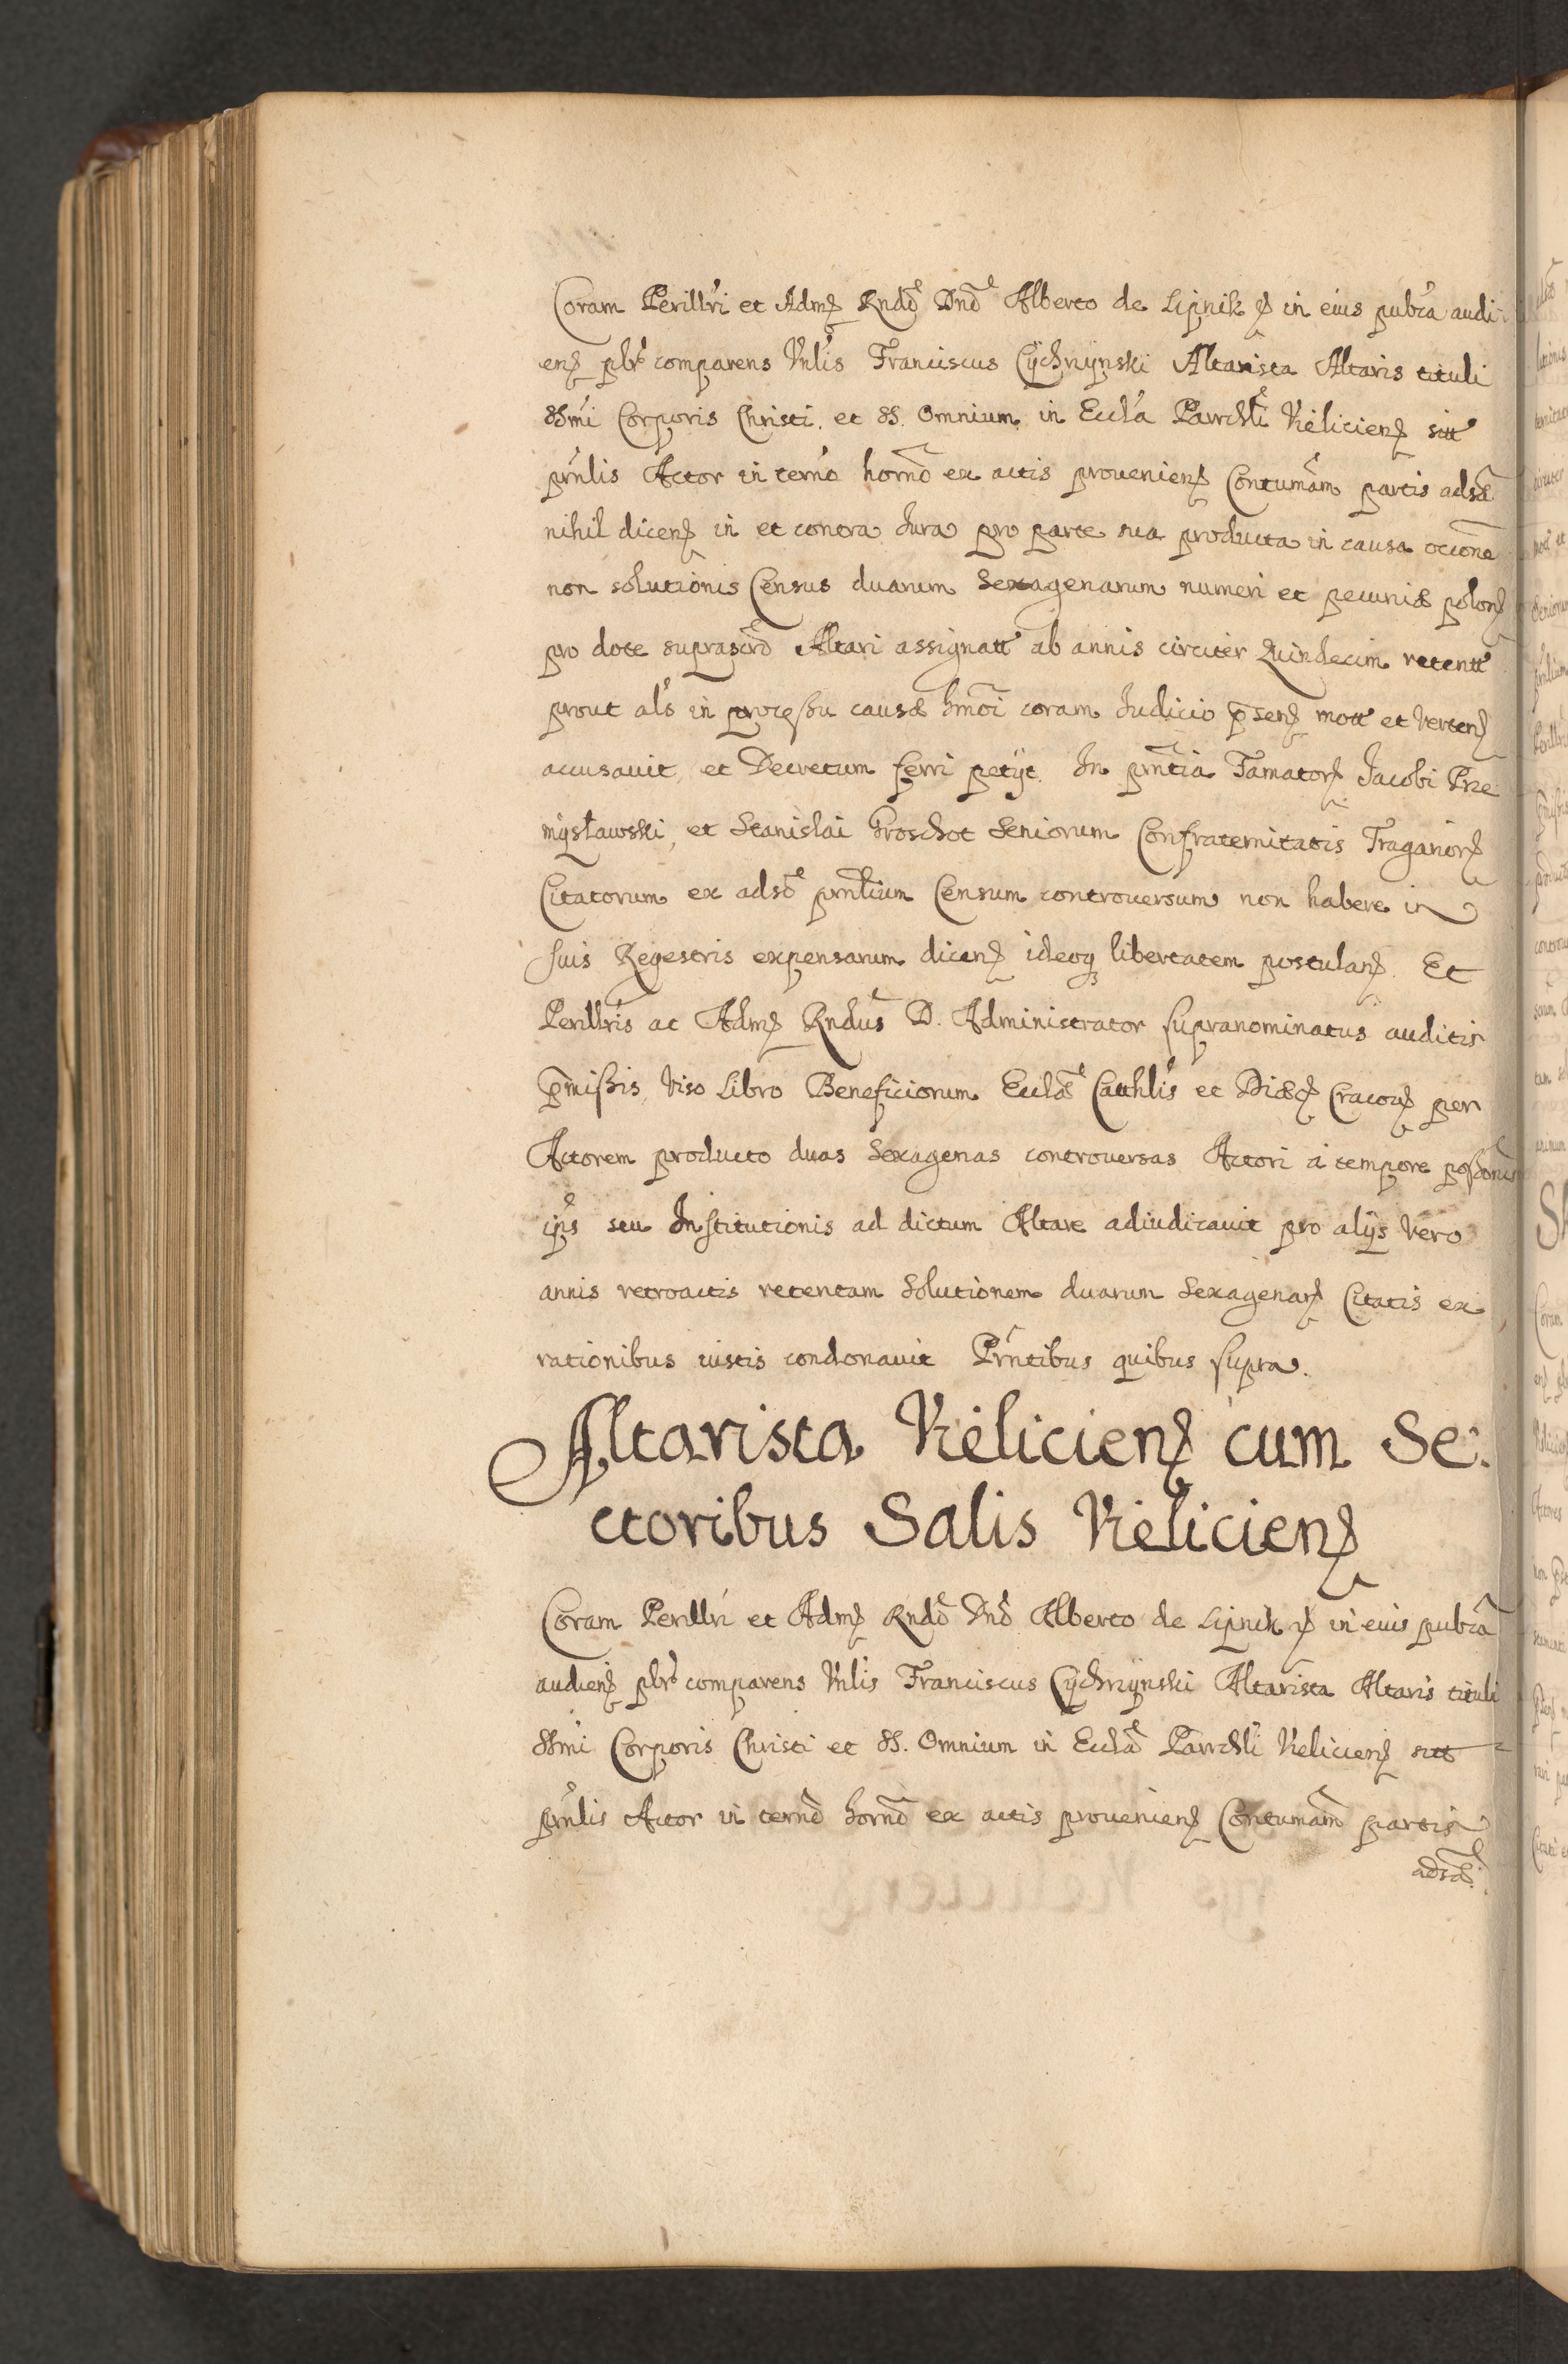 Coram Perillri et Adm Rndo Dno Alberto de Lipnik in eius pubca audi
en plr comparens Vnlis Franciscus Cÿchrÿnski Altarista Altaris tituli
SSmi Corporis Christi et SS. Omnium in Eccla Parrchli Vielicien sitt
prnlis Actor in termo horno ex actis provenien Contumam partis adsæ
nihil dicen in et contra Iura pro parte sua producta in causa occone
non solutionis Census duarum Sexagenarum numeri et pecuniæ polon
pro dote suprascro Altari assignatt ab annis circiter Quindecim retentt
prout als in processu causæ hmoi coram Iudicio psen mott et verten
accusavit, et Decretum ferri petÿt. In prntia Famator Jacobi Prze
mÿsławski, et Stanislai Groschot Seniorum Confraternitatis Traganior
Citatorum ex adso prntium Censum controversum non habere in
suis Regestris expensarum dicen ideoq libertatem postulan. Et
Perillris ac Adm Rndus D. Administrator supranominatus auditis
pmissis, viso Libro Beneficiorum Ecclæ Cathlis et Diæc Cracov per
Actorem producto duas Sexagenas controversas Actori à tempore possonis
ipss seu Institutionis ad dictum Altare adiudicavit pro alÿs vero
annis retroactis retentam Solutionem duarum Sexagenar Citatis ex
rationibus iustis condonavit Prntibus quibus supra.
Altarista Vielicien cum Se:
ctoribus Salis Vielicien
Coram Perillri et Adm Rndo Dno Alberto de Lipnik in eius pubca
audien plr comparens Vnlis Franciscus Cÿchrÿnski Altarista Altaris tituli
SSmi Corporis Christi et SS. Omnium in Eccla Parrchli Vielicien sitt
prnlis Actor in termo horno ex actis provenien Contumam partis
adsæ